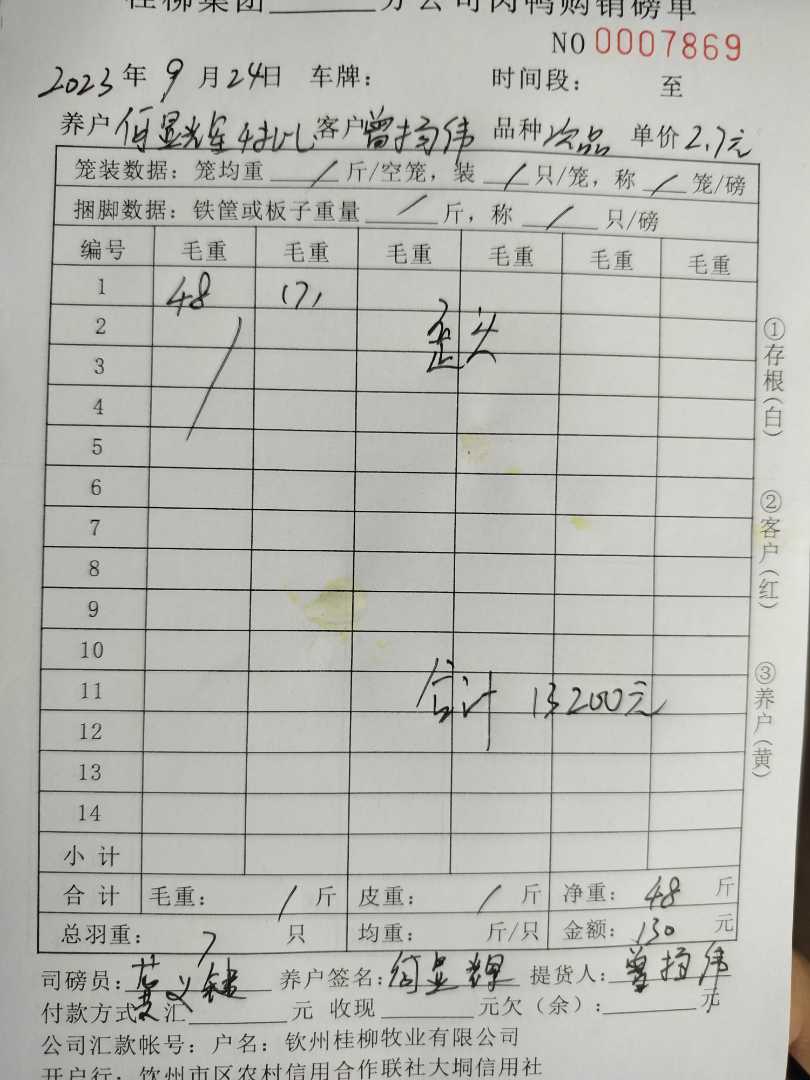 桂柳集团______分公司肉鸭购销磅单
NO 0007869
2023年9月24日 车牌: 时间段: 至
养户 何显辉 客户曾扬伟 品种次品 单价2.7元
笼装数据: 笼均重 / 斤/空笼, 装 / 只/笼, 称 / 笼/磅
捆脚数据: 铁筐或板子重量 / 斤, 称 / 只/磅
编号 毛重 毛重 毛重 毛重 毛重 毛重
1 48 (7)
2 歪头
3
4
5
6
7
8
9
10
11 合计 13200元
12
13
14
小计
合计 毛重: / 斤 皮重: / 斤 净重: 48 斤
总羽重: 7 只 均重: 斤/只 金额: 130 元
司磅员: 养户签名: 何显辉 提货人: 曾扬伟
付款方式: 汇______元 收现______元欠(余):______元
公司汇款帐号: 户名: 钦州桂柳牧业有限公司
开户行: 钦州市区农村信用合作联社大垌信用社
①存根(白)
②客户(红)
③养户(黄)